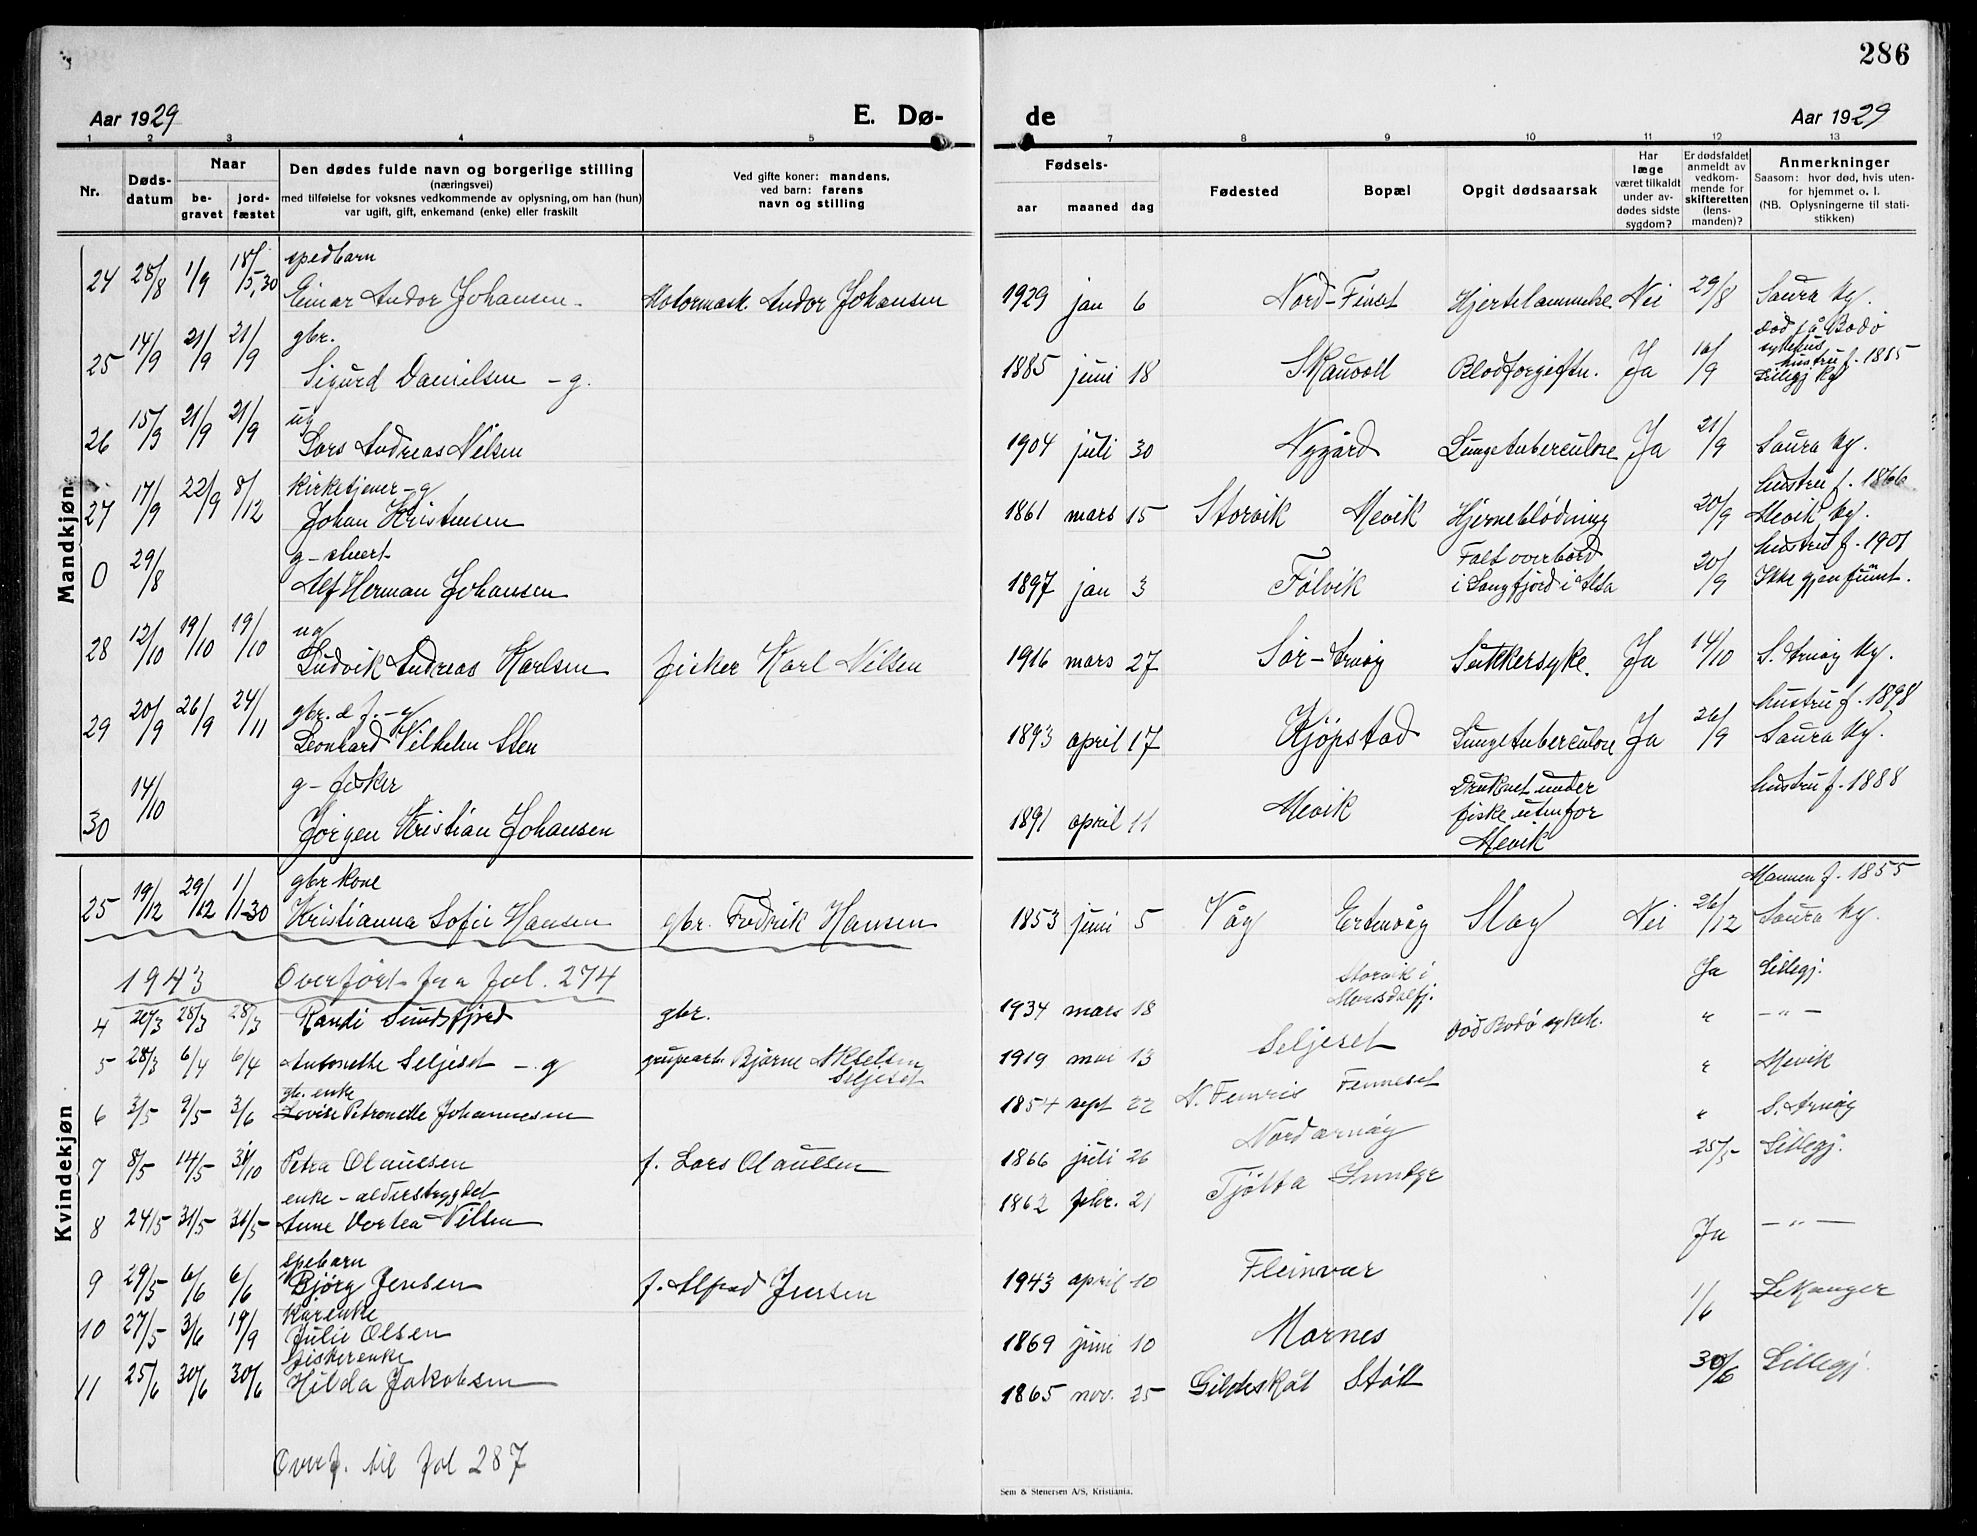 286
Aar 1929
E. Dø-
de
Aar 1929
1 2 3 4 5 7 8 9 10 11 12 13
Nr.
Døds-
datum
Naar
be-
gravet
jord-
fæstet
Den dødes fulde navn og borgerlige stilling
(næringsvei)
med tilføielse for voksnes vedkommende av oplysning, om han (hun)
var ugift, gift, enkemand (enke) eller fraskilt
Ved gifte koner: mandens,
ved barn: farens
navn og stilling
Fødsels-
aar maaned dag
Fødested
Bopæl
Opgit dødsaarsak
Har
læge
været tilkaldt
under av-
dødes sidste
sygdom?
Er dødsfaldet
anmeldt av
vedkom-
mende for
skifteretten
(lens-
manden)?
Anmerkninger
Saasom: hvor død, hvis uten-
for hjemmet o. l.
(NB. Oplysningerne til stati-
stikken)
Mandkjøn
spedbarn
24 28/8 1/9 18/5,30 Einar Andor Johansen Motormask. Andor Johansen 1929 jan 6 Nord-Finset Nei 29/8 Saura kg.
gbr. død på Bodø
sykehus
hustru f. 1885
25 14/9 21/9 21/9 Sigurd Danielsen - g. 1885 juni 18 Skauvoll Blodforgiftn. Ja 16/9 Lillegj kg
ug
26 15/9 21/9 21/9 Lars Andreas Nilsen 1904 juli 30 Nygård Lungetuberculose Ja 21/9 Saura kg.
kirketjener - g hustru f. 1866
27 17/9 22/9 8/12 Johan Kristensen 1861 mars 15 Storvik Mevik Hjerneblødning 20/9 Mevik kg.
g - Falt overbord hustru f. 1901
0 29/8 Alf Herman Johansen 1897 jan 3 Følvik i Langfjord i Alta 20/9 Ikke gjenfunnet.
ug
28 12/10 19/10 19/10 Ludvik Andreas Karlsen fisker Karl Nilsen 1916 mars 27 Sør-Arnøy Sukkersyke. Ja 14/10 S. Arnøy kg.
gbr. & f. - g hustru f. 1898
29 20/9 26/9 24/11 Leonhard Vilhelm Sten 1893 april 17 Kjøpstad Lungetuberculose Ja 26/9 Saura kg.
g - fisker Druknet under hustru f. 1888
30 14/10 Jørgen Kristian Johansen 1891 april 11 Mevik fiske utenfor
Mevik
Kvindekjøn
gbr kone Mannen f. 1855
25 19/12 29/12 1/1-30 Kristianna Sofie Hansen gbr. Fredrik Hansen 1853 juni 5 Våg Ertenvåg Slag Nei 26/12 Saura kg.
1943 Overført fra fol. 274
4 20/3 28/3 28/3 Randi Sundsfjord gbr. 1934 mars 18 Storvik i
Morsdalfj. Ja Lillegj.
5 28/3 6/4 6/4 Antonette Seljeset - g Bjarne Akselsen
Seljeset 1919 mai 13 Seljeset Død Bodø sykeh. " - " -
gb. enke
6 3/5 9/5 3/6 Lovise Petronelle Johannesen 1854 sept 22 N. Femris Fenneset " Mevik
7 8/5 14/5 31/10 Petra Olaussen f. Lars Olaussen 1866 juli 26 Nordarnøy " S. Arnøy
enke - alderstrygdet
8 24/5 31/5 31/5 Anne Dortea Nilsen 1862 febr. 21 Tjøtta 25/5 Lillegj.
spebarn
9 29/5 6/6 6/6 Bjørg Jensen f. Alfred Jensen 1943 april 10 Fleinvær Ja - " -
kårenke
10 27/5 3/6 19/9 Julie Olsen 1869 juni 10 Mårnes 1/6 Lekanger
fiskerenke
11 25/6 30/6 30/6 Hilda Jakobsen 1865 nov. 25 Gildeskål Støtt 30/6 Lillegj.
Overf. til fol 287
Sem & Stenersen A/S, Kristiania.